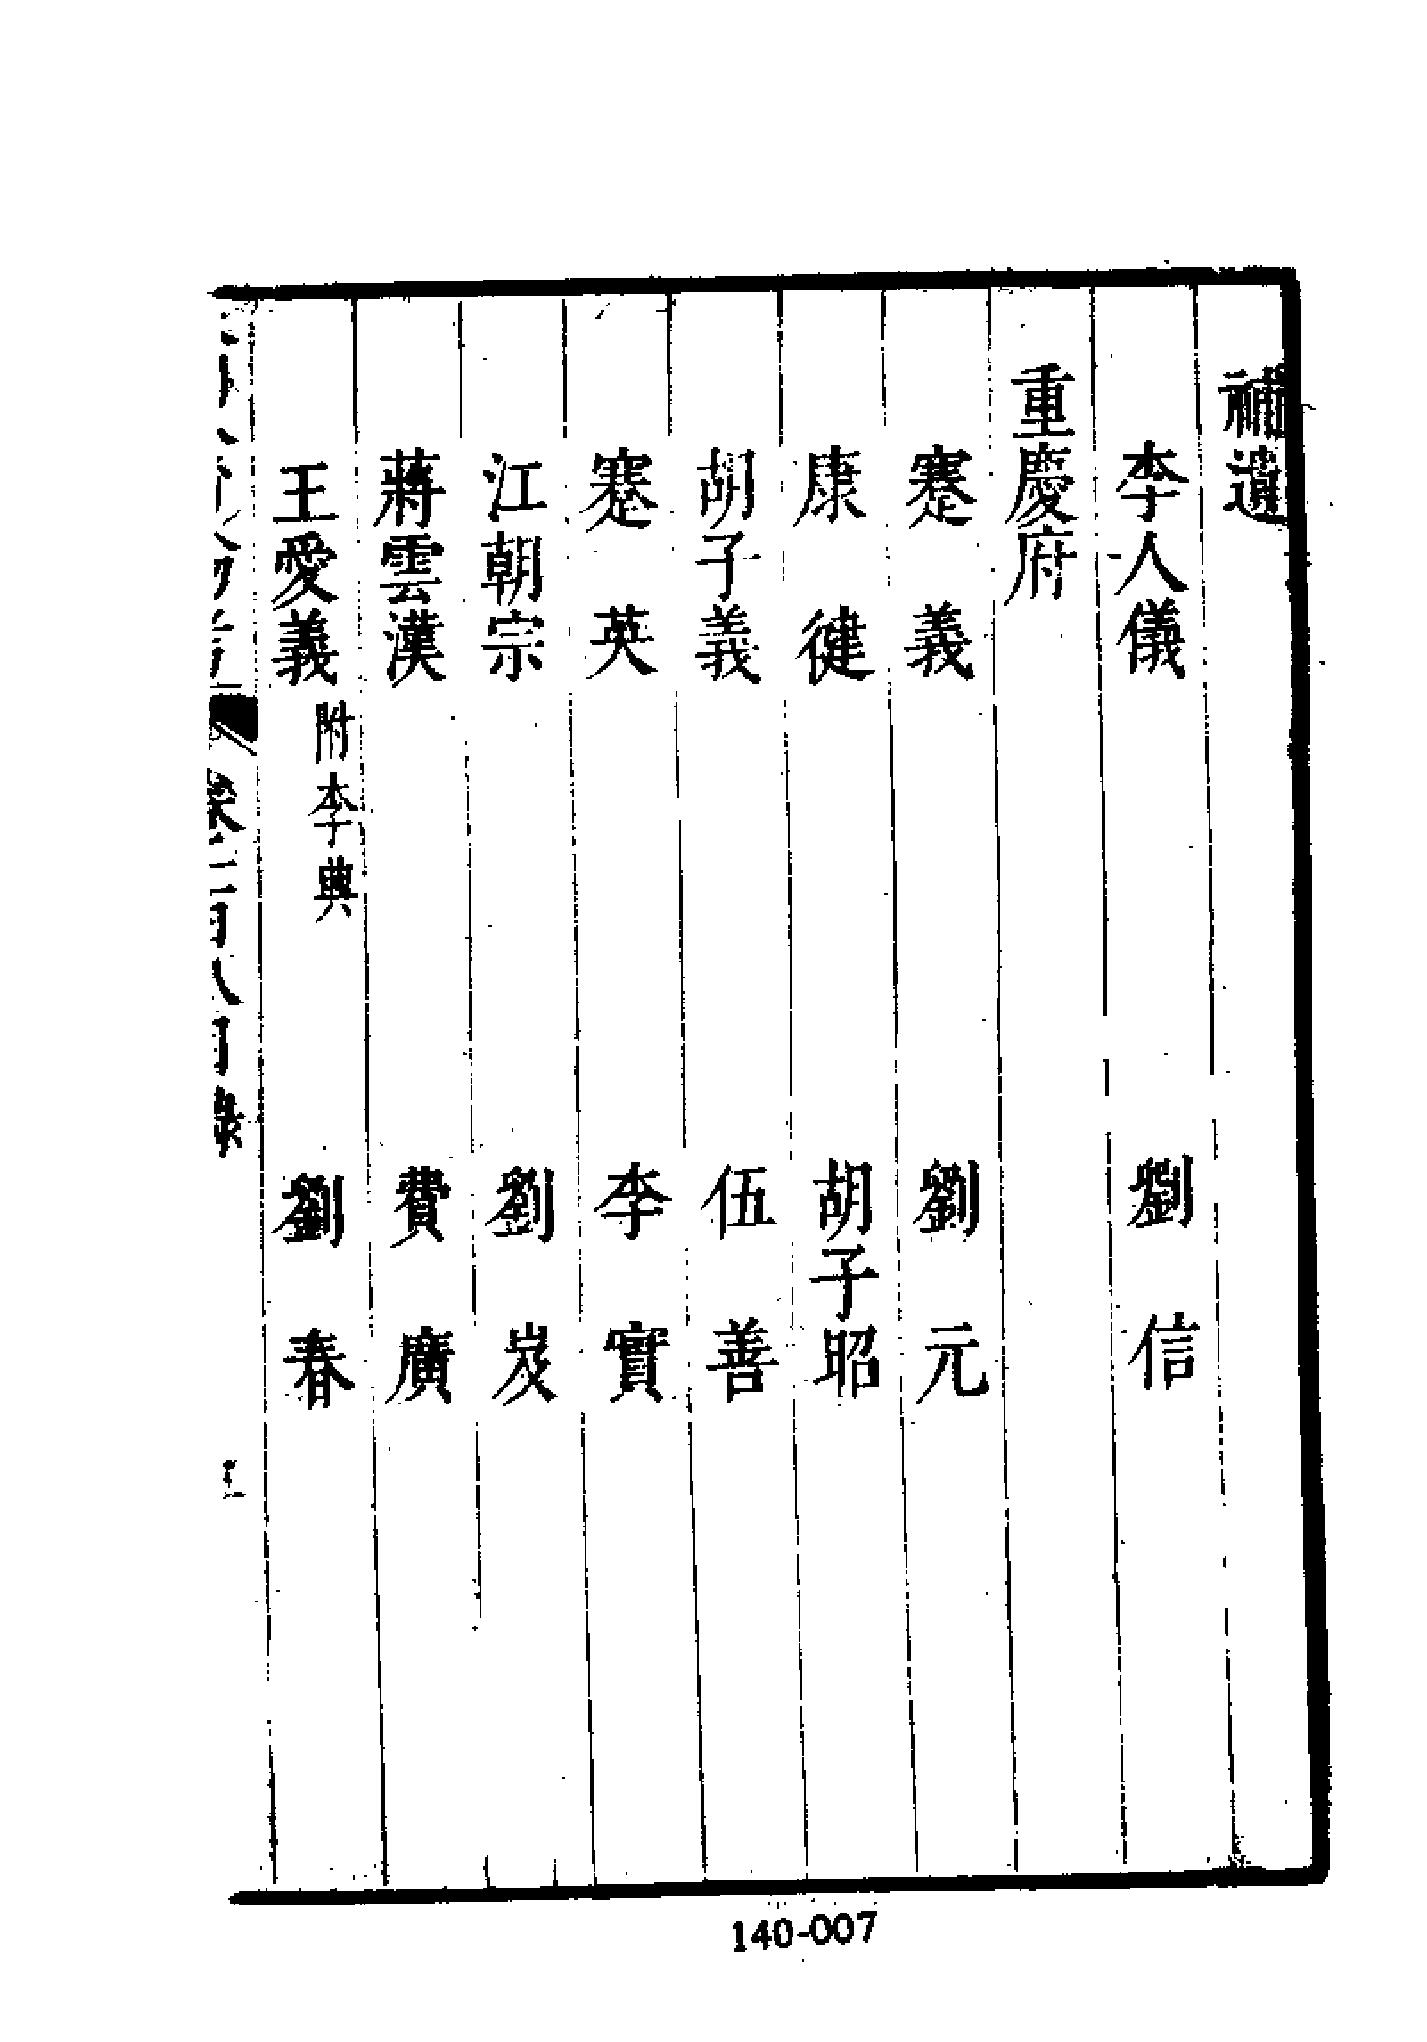 補遺
李人儀　劉信
重慶府
蹇義　劉元
康健　胡子昭
胡子義　伍善
蹇英　李實
江朝宗　劉岌
蔣雲漢　費廣
王愛義附李典　劉春
140-007